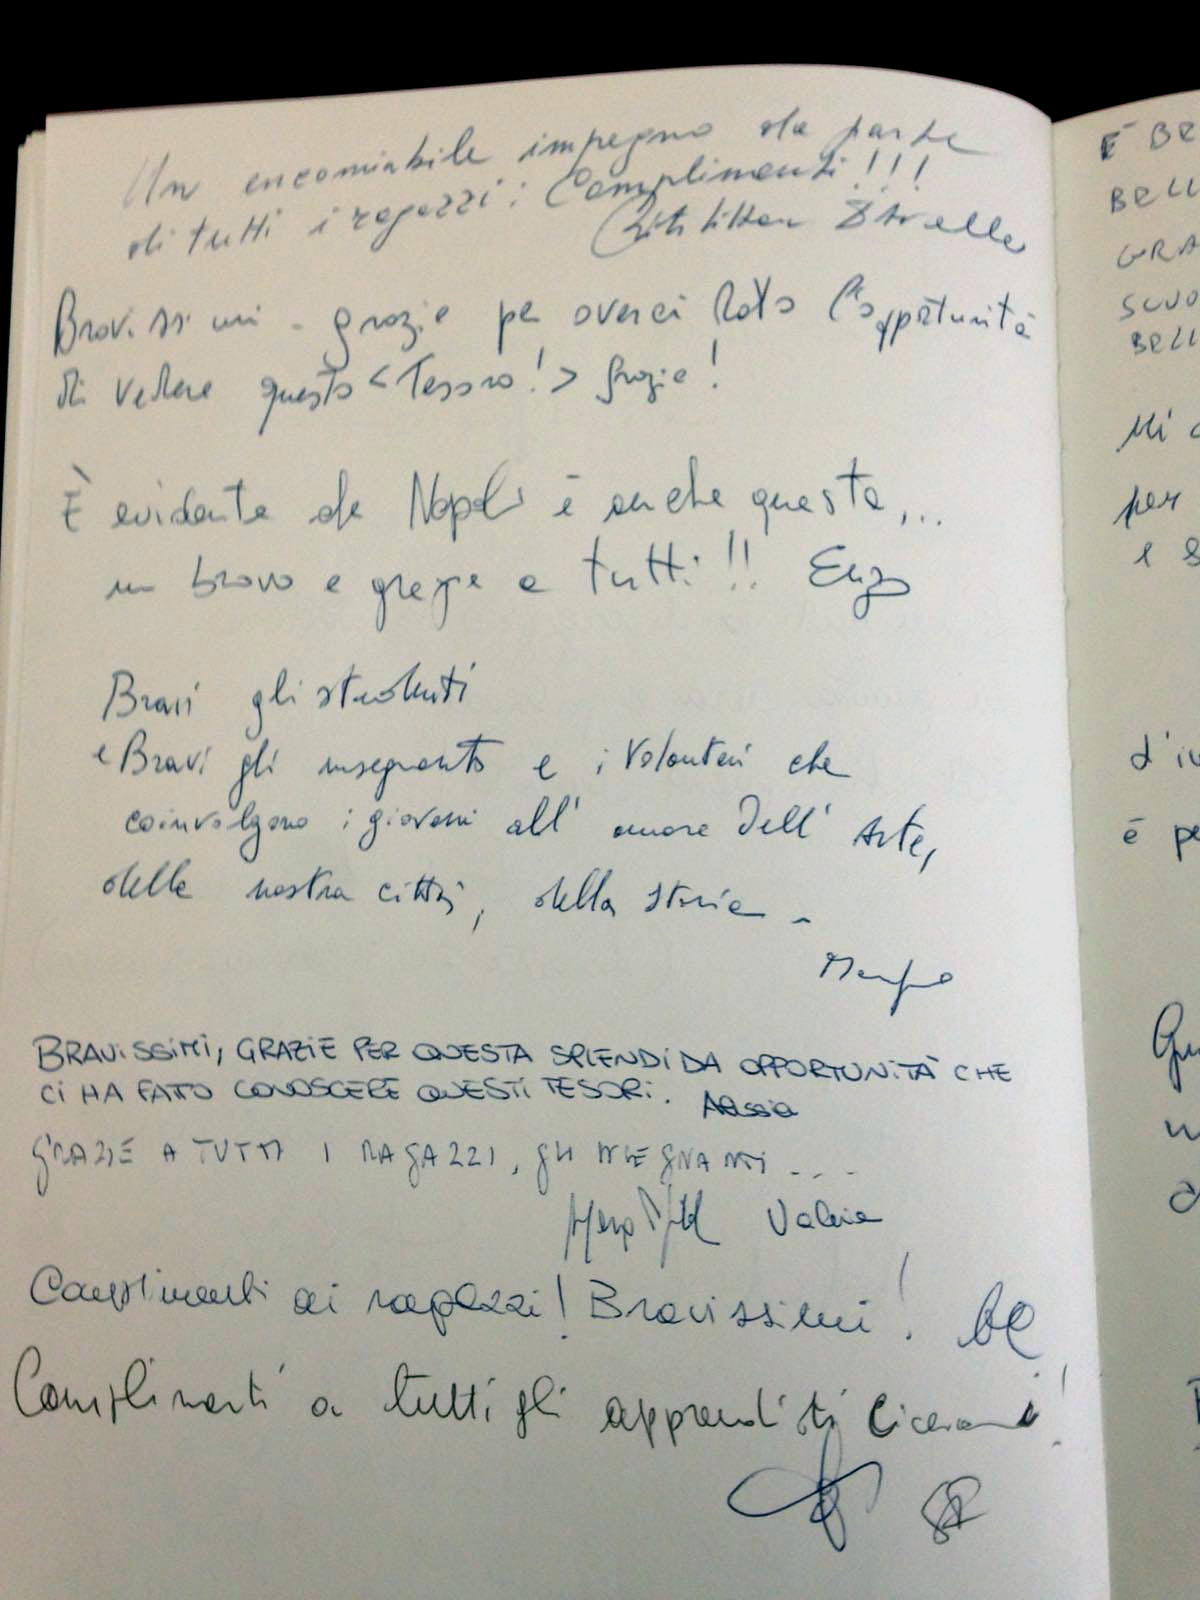 Un encomiabile impegno da parte
di tutti i ragazzi: Complimenti!!!
Bravissimi - grazie per averci dato l'opportunità
di vedere questo <Tesoro!> Grazie!
È evidente che Napoli è anche questa...
un bravo e grazie a tutti!! Enzo
Bravi gli studenti
e Bravi gli insegnanti e i Volontari che
coinvolgono i giovani all'amore dell'Arte,
della nostra città, della storia -
BRAVISSIMI, GRAZIE PER QUESTA SPLENDIDA OPPORTUNITÀ CHE
CI HA FATTO CONOSCERE QUESTI TESORI. Alessia
GRAZIE A TUTTI I RAGAZZI, GLI INSEGNANTI ...
Valeria
Complimenti ai ragazzi! Bravissimi!
Complimenti a tutti gli apprendisti Ciceroni!
È BE
BELL
GRA
SCUO
BELL
Mi
per
e
d'
è pe